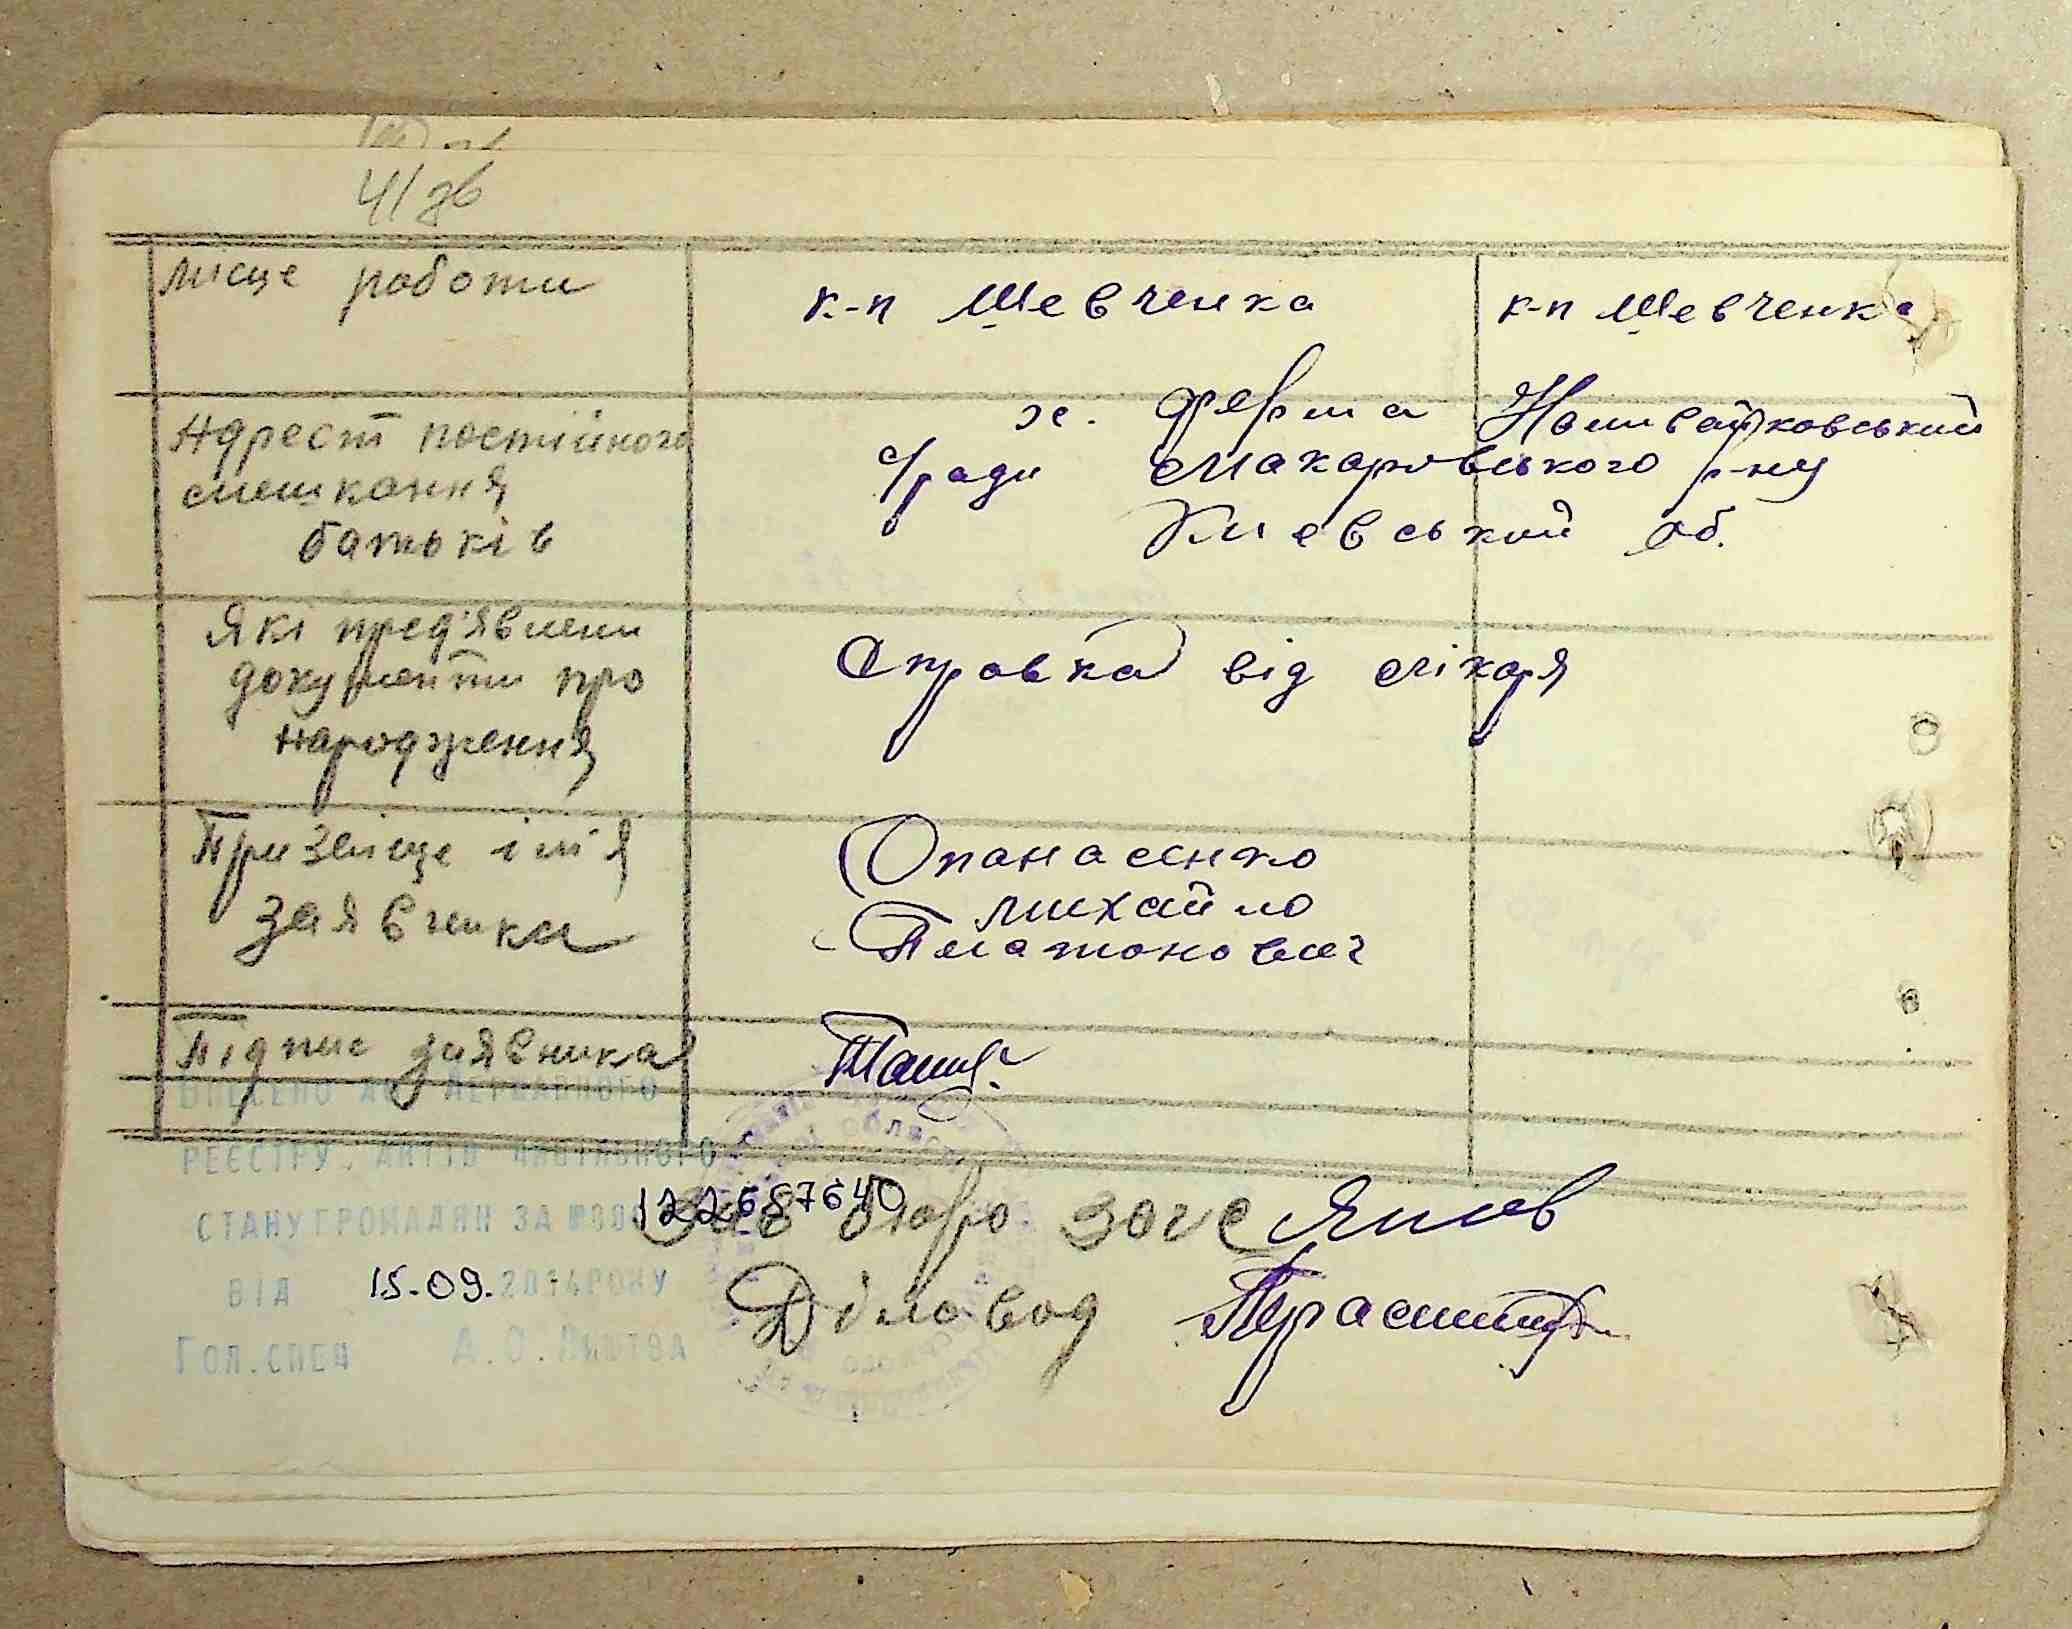 41 зв
Місце роботи
к-п Шевченка
к-п Шевченка
Адрест постійного
смешкання
батьків
х. Ферма Наливайковський
с/ради Макарівського р-ну
Киевський об.
Які пред'явлени
документи про
народження
Справка від лікаря
Призвіще ім'я
заявника
Опанасенко
Михайло
Платонович
Підпис заявника
ВНЕСЕНО ДО ДЕРЖАВНОГО
РЕЄСТРУ АКТІВ ЦИВІЛЬНОГО
СТАНУ ГРОМАДЯН ЗА №000
122687640
ВІД 15.09.2014 РОКУ
ГОЛ.СПЕЦ А.О.
Зав бюро загс
Діловод